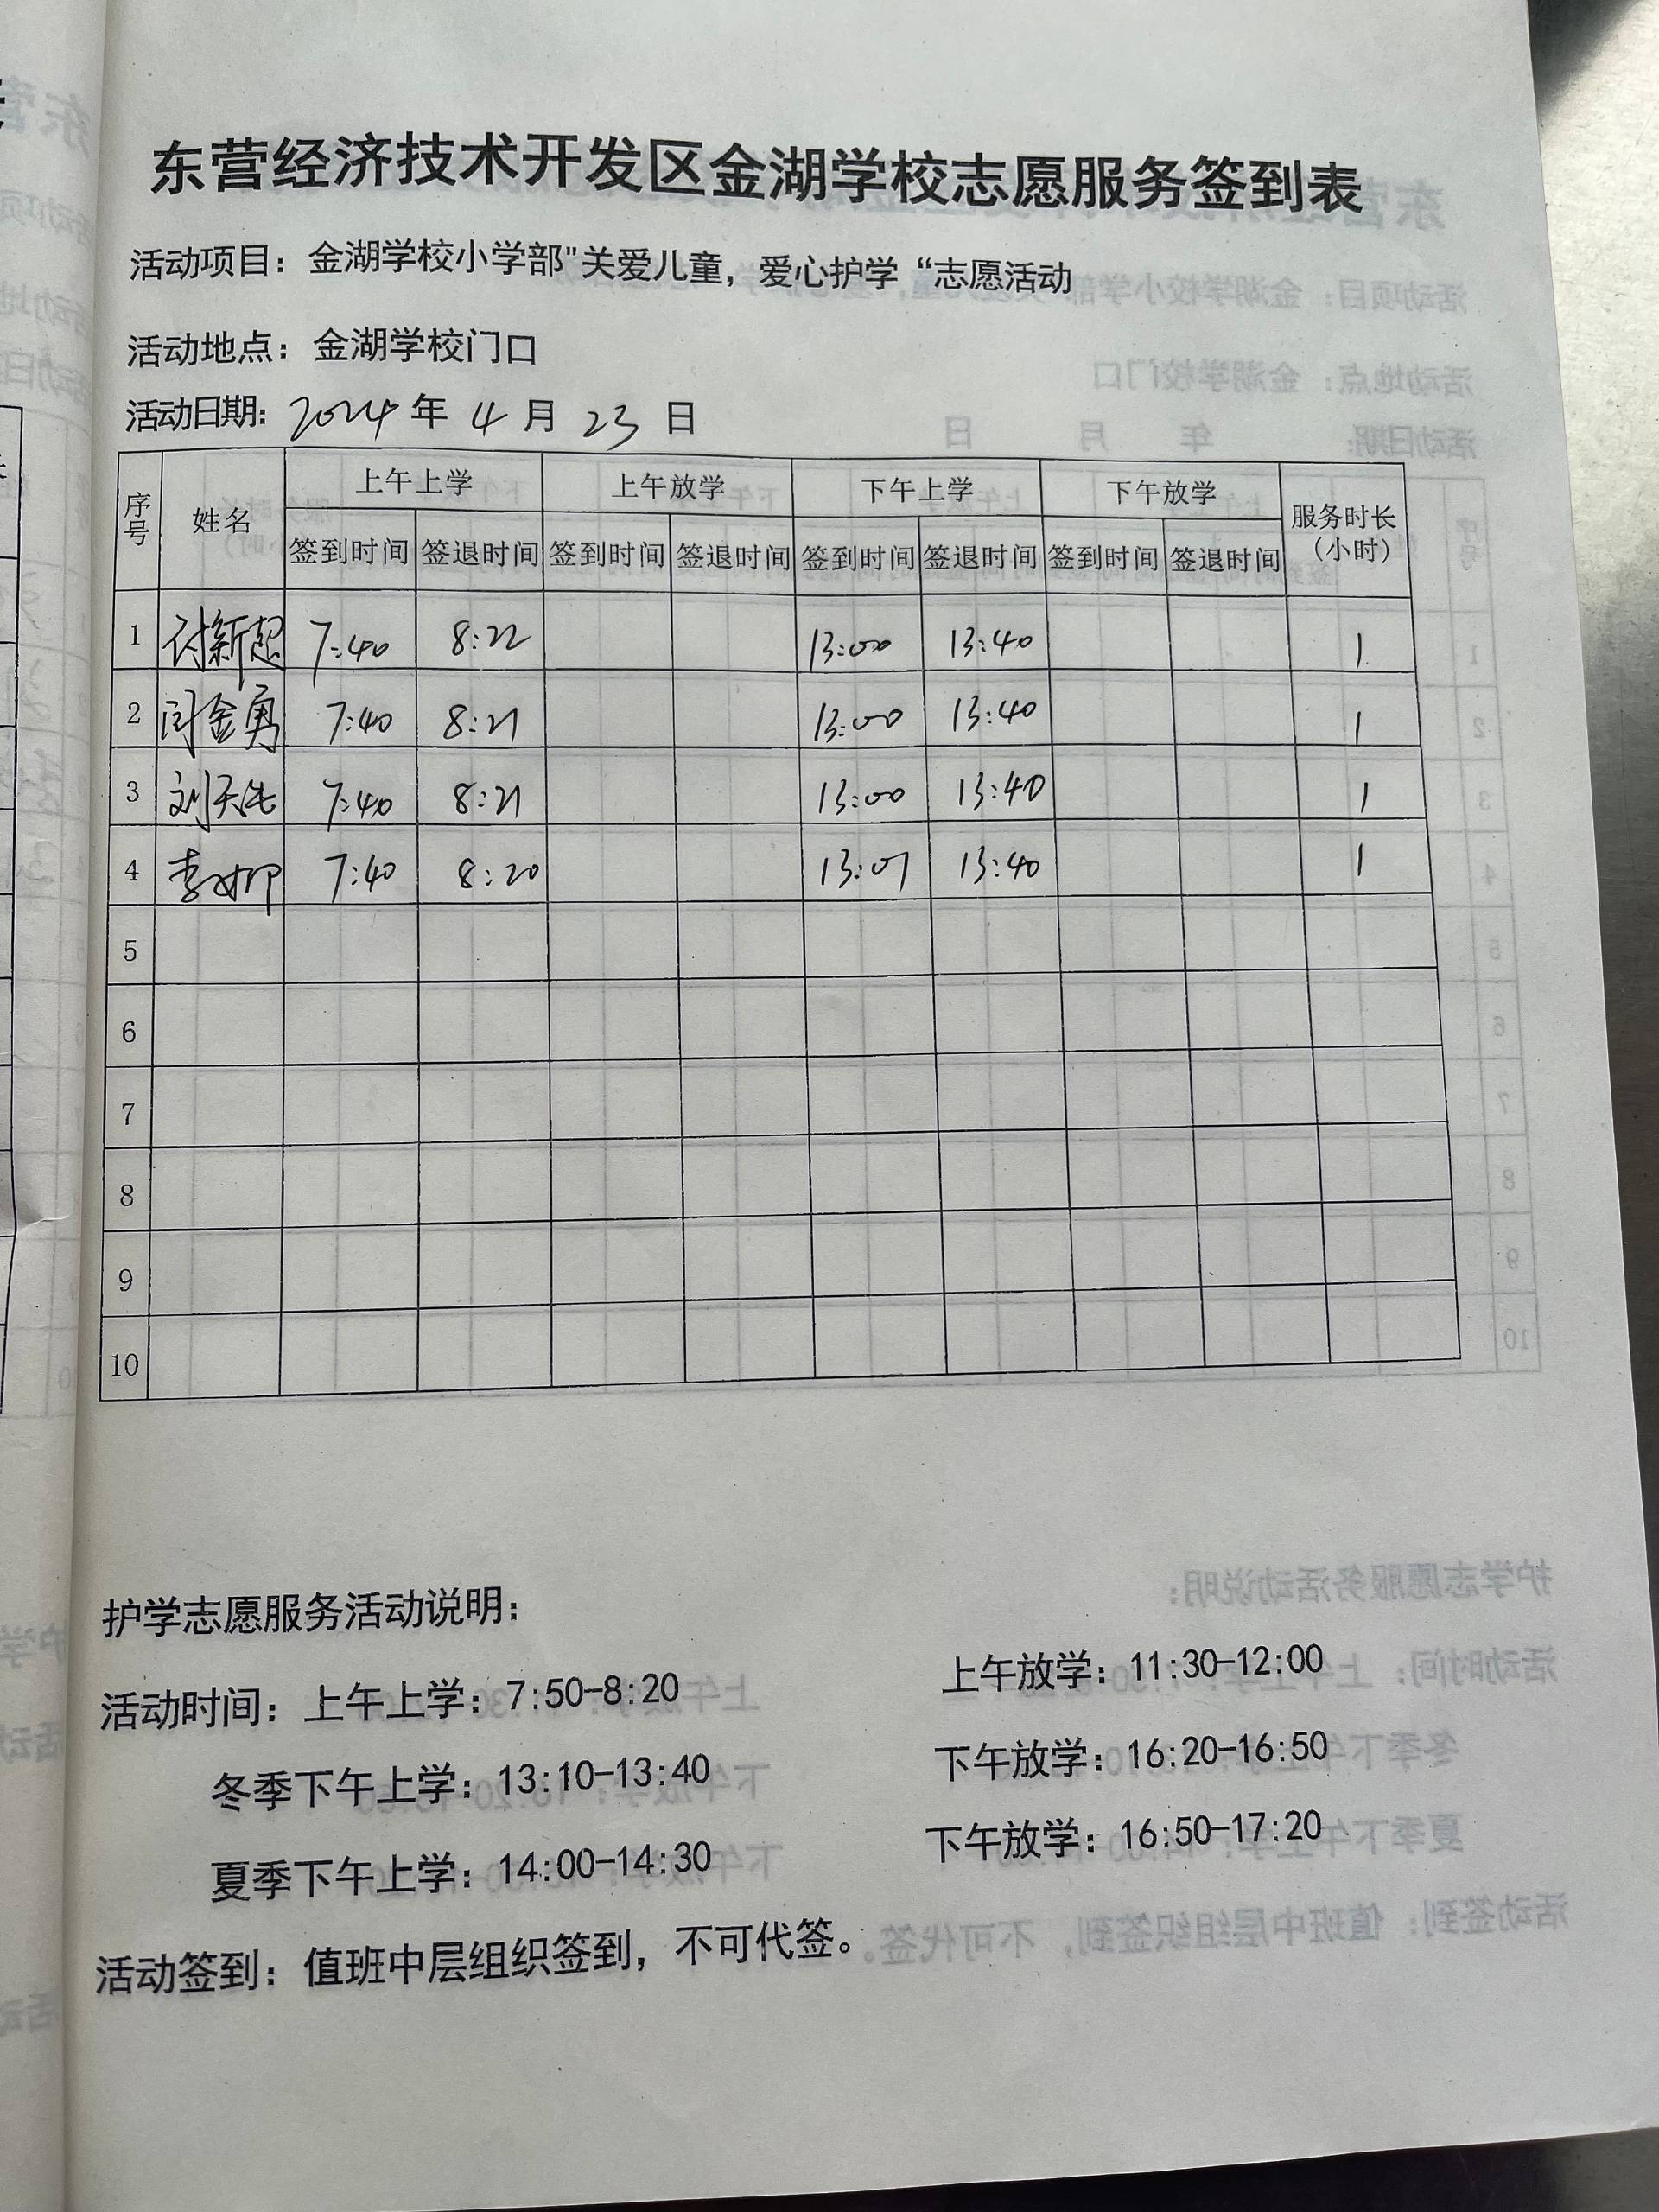 东营经济技术开发区金湖学校志愿服务签到表
活动项目：金湖学校小学部"关爱儿童，爱心护学“志愿活动
活动地点：金湖学校门口
活动日期：2024年 4 月 23 日
序号 姓名 上午上学 上午放学 下午上学 下午放学 服务时长（小时）
签到时间 签退时间 签到时间 签退时间 签到时间 签退时间 签到时间 签退时间
1 新超 7:40 8:22 13:00 13:40 1
2 闫金勇 7:40 8:21 13:00 13:40 1
3 刘天浩 7:40 8:21 13:00 13:40 1
4 李 7:40 8:20 13:01 13:40 1
5
6
7
8
9
10
护学志愿服务活动说明：
活动时间：上午上学：7:50-8:20 上午放学：11:30-12:00
冬季下午上学：13:10-13:40 下午放学：16:20-16:50
夏季下午上学：14:00-14:30 下午放学：16:50-17:20
活动签到：值班中层组织签到，不可代签。